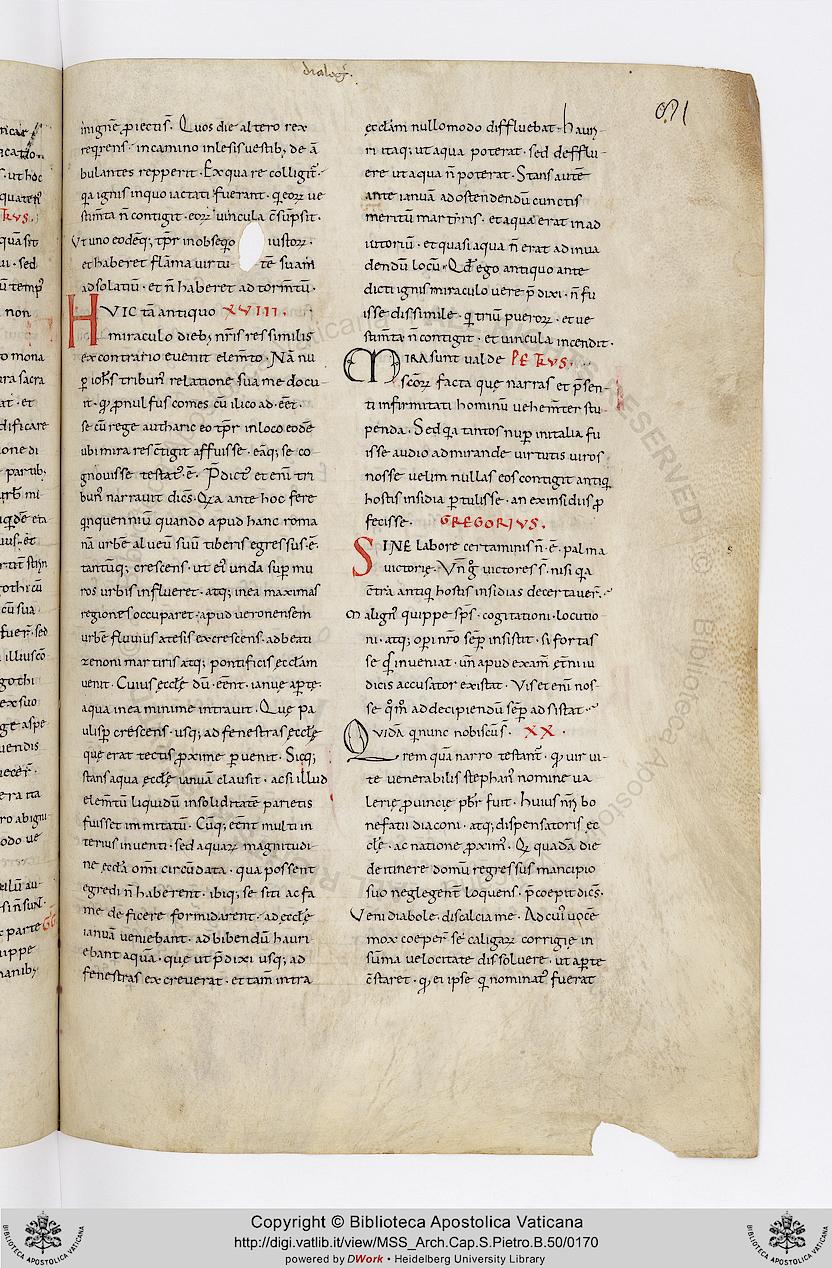 dialog̃.
091
inigne ꝓiectis. Quos die altero rex
reqrens· incamino inlesis uestib; deā
bulantes repperit. Ex qua re colligit̃.
qa ignis inquo iactati fuerant· q̨eoꝝ ue
stim̃ta ñ contigit· eoꝝ uincula c̃supsit.
Vt uno eodēq; tp̃r inobseqo iustoꝝ.
ethaberet flāma uirtutē suam
adsolatiū· et ñ haberet ad torm̃tū.
HVIC tā antiquo XVIII.
miraculo dieb; nr̃is res similis
excontrario euenit elem̃to. Nā nu
ꝑ ioh̃s tribun᾿ relatione sua me docu
it· qđ ꝓnulfus comes cū ilico ad.eēt.
se cū rege autharic eo tp̃r inloco eodē
ubi mira res c̃tigit affuisse· eāq; se co
gnouisse testat᾿.ē. P̃dict᾿ et eni tri
bun᾿ narrauit dicẽs. Qa ante hoc fere
qnquenniū quando apud hanc roma
nā urbē alueū suū tiberis egressus.ē.
tantūq; crescens· ut ei᾿ unda suꝑ mu
ros urbis influeret· atq; inea maximas
regiones occuparet· apud ueronensem
urbē fluuius atesis excrescens· adbeati
zenoni martiris atq; pontificis eccl̃am
uenit. Cuius eccl̃ę dū.eēnt· ianuę aꝑtę·
aqua inea minime intrauit. Quę pa
ulisꝑ crescens· usq; ad fenestras eccl̃ę
quę erat tectis ꝓxime ꝑuenit. Sicq;
stans aqua eccl̃ę ianuā clausit· acsi illud
elem̃tū liquidū insoliditatē parietis
fuisset immitatū. Cūq; eēnt multi in
terius inuenti· sed aquaꝝ magnitudi
ne eccl̃a om̃i circūdata· qua possent
egredi ñ haberent· ibiq; se siti ac fa
me deficere formidarent· ad eccl̃ę
ianuā ueniebant· ad bibendū hauri
ebant aqua· quę ut p̃dixi usq; ad
fenestras excreuerat· et tam̃ intra
eccl̃am nullomodo diffluebat· hauri
ri itaq; ut aqua poterat· sed defflu
ere ut aqua ñ poterat. Stans autẽ
ante ianuā adostendendū cunctis
meritū martyris· et aqua erat in ad
iutoriū· et quasi aqua ñ erat ad inua
dendū locū. Qđ ego antiquo ante
dicti ignis miraculo uere p̃dixi· ñ fu
isse dissimile· q̨ triū pueroꝝ· et ue
stim̃ta ñ contigit· et uincula incendit.
MIRA sunt ualde PETRVS.
sc̃oꝝ facta quę narras et p̃sen
ti infirmitati hominū uehem̃ter stu
penda. Sed qa tantos nuꝑ initalia fu
isse audio admirande uirtutis uiros
nosse uelim nullas eos contigit antiq
hostis insidia ꝑtulisse· an ex insidiis ꝓ
fecisse. GREGORIVS.
SINE labore certaminis ñ.ē. palma
uictorię. Vñ g̊ uictores s̃· nisi qa
c̃tra antiq hostis insidias decertauer̃.
Malign᾿ quippe sp̃s· cogitationi· locutio
ni· atq; oꝑi nr̃o seꝑ insistit· si fortas
se qđ inueniat· uñ apud exam̃ et̃ni iu
dicis accusator existat. Vis et eni nos
se qm̃ addecipiendū seꝑ adsistat.
QVIDA qnunc nobiscũs· XX.
rem quā narro testant̃· qđ uir ui
te uenerabilis stephan᾿ nomine ua
lerię ꝓuincię pbr̃ fuit· huius nr̃i bo
nefatii diaconi· atq; dispensatoris ec
cl̃ę· ac natione ꝓxim᾿. Q quadā die
deitinere domū regressus mancipio
suo neglegent̃ loquens· p̃cepit dicẽs.
Veni diabole· discalcia me. Ad cui᾿ uocē
mox coeper̃ se caligaꝝ corrigię in
suma uelocitate dissoluere· ut aꝑte
c̃staret· qđ ei ipse q nominat᾿ fuerat
Copyright © Biblioteca Apostolica Vaticana
http://digi.vatlib.it/view/MSS_Arch.Cap.S.Pietro.B.50/0170
powered by DWork • Heidelberg University Library